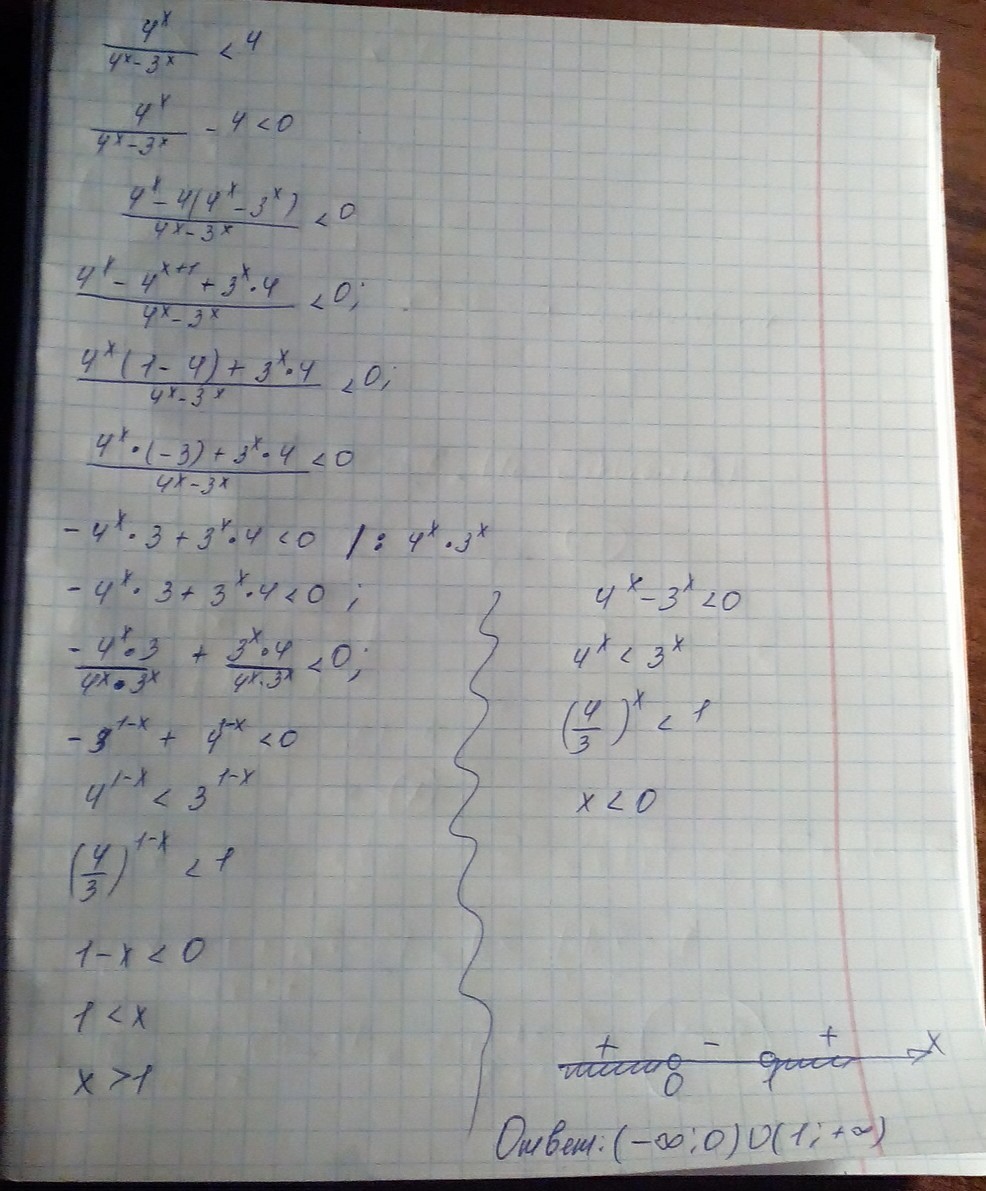 4^x / (4^x - 3^x) < 4
4^x / (4^x - 3^x) - 4 < 0
(4^x - 4(4^x - 3^x)) / (4^x - 3^x) < 0
(4^x - 4^(x+1) + 3^x · 4) / (4^x - 3^x) < 0;
(4^x (1 - 4) + 3^x · 4) / (4^x - 3^x) < 0;
(4^x · (-3) + 3^x · 4) / (4^x - 3^x) < 0
- 4^x · 3 + 3^x · 4 < 0 /: 4^x · 3^x
- 4^x · 3 + 3^x · 4 < 0 ;
(- 4^x · 3) / (4^x · 3^x) + (3^x · 4) / (4^x · 3^x) < 0;
- 3^(1-x) + 4^(1-x) < 0
4^(1-x) < 3^(1-x)
(4/3)^(1-x) < 1
1 - x < 0
1 < x
x > 1
4^x - 3^x < 0
4^x < 3^x
(4/3)^x < 1
x < 0
+ - + x
0 1
Ответ: (-∞; 0) U (1; +∞)